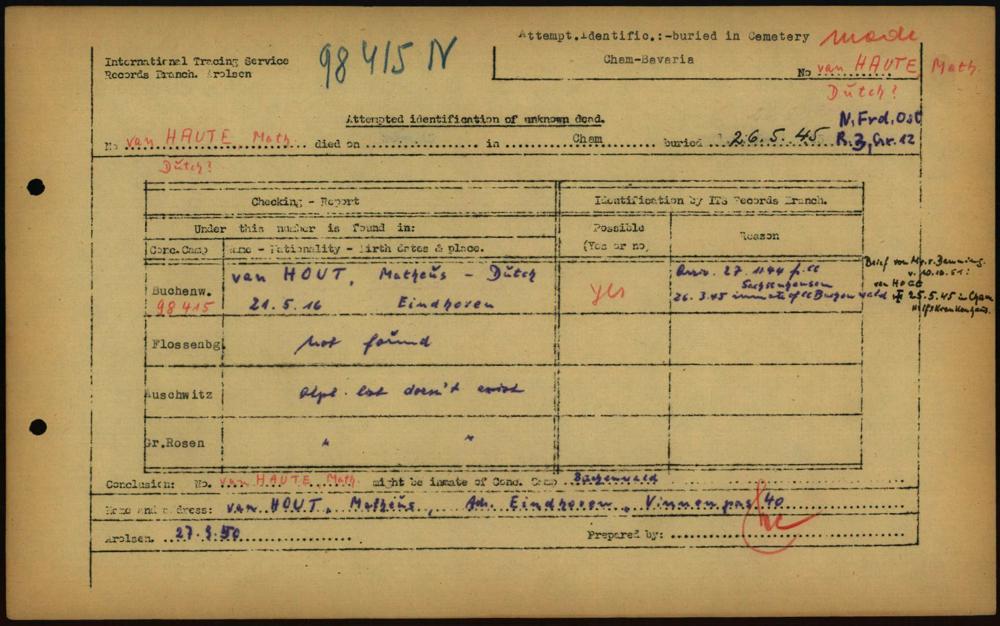 Attempt.Identific.:-buried in Cemetery made
98415 N
International Tracing Service
Records Branch. Arolsen
Cham-Bavaria
No van HAUTE Math.
Dutch?
Attempted identification of unknown dead.
N.Frd.Ost
No van HAUTE Math. died on ............ in ............ Cham ............ buried 26.5.45 R.3, Gr.12
Dutch?
Checking - Report
Identification by ITS Records Branch.
Under this number is found in:
Possible
(Yes or no)
Reason
Conc.Camp
Name - Nationality - Birth dates & place.
Buchenw.
98415
van HOUT, Matheus - Dutch
21.5.16 Eindhoven
yes
Sachsenhausen
Flossenbg.
not found
Auschwitz
Alph. list doesn't exist
Gr.Rosen
" "
25.5.45 in Cham
Conclusion: No. van HAUTE Math. might be inmate of Conc. Camp Buchenwald
Name and address: van HOUT, Matheus, Eindhoven, 40
Arolsen. 27.9.50
Prepared by: